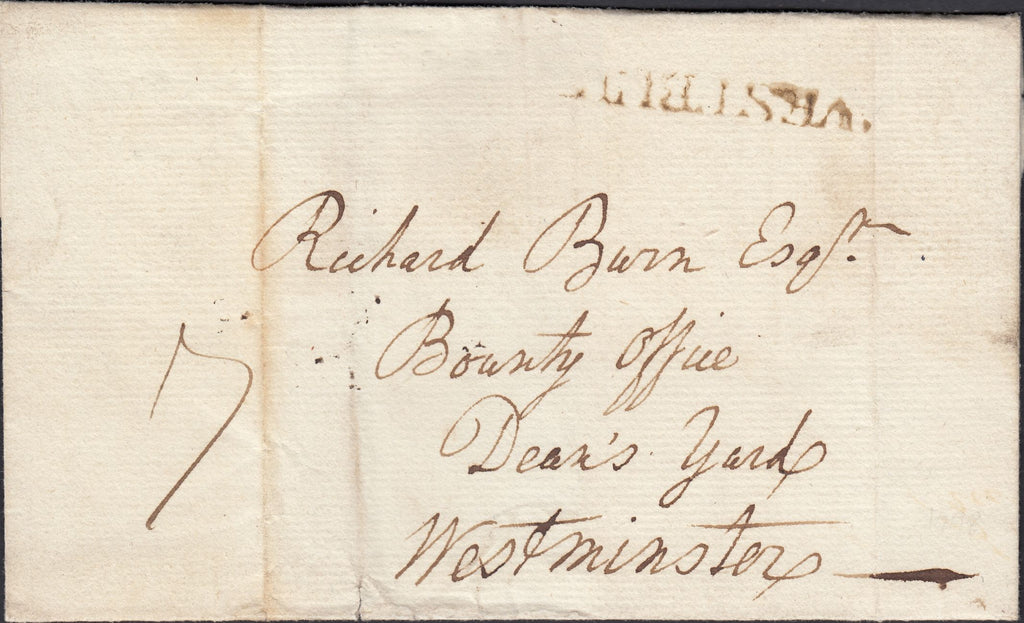 7
Richard Burn Esqr.
Bounty Office
Dean's Yard
Westminster